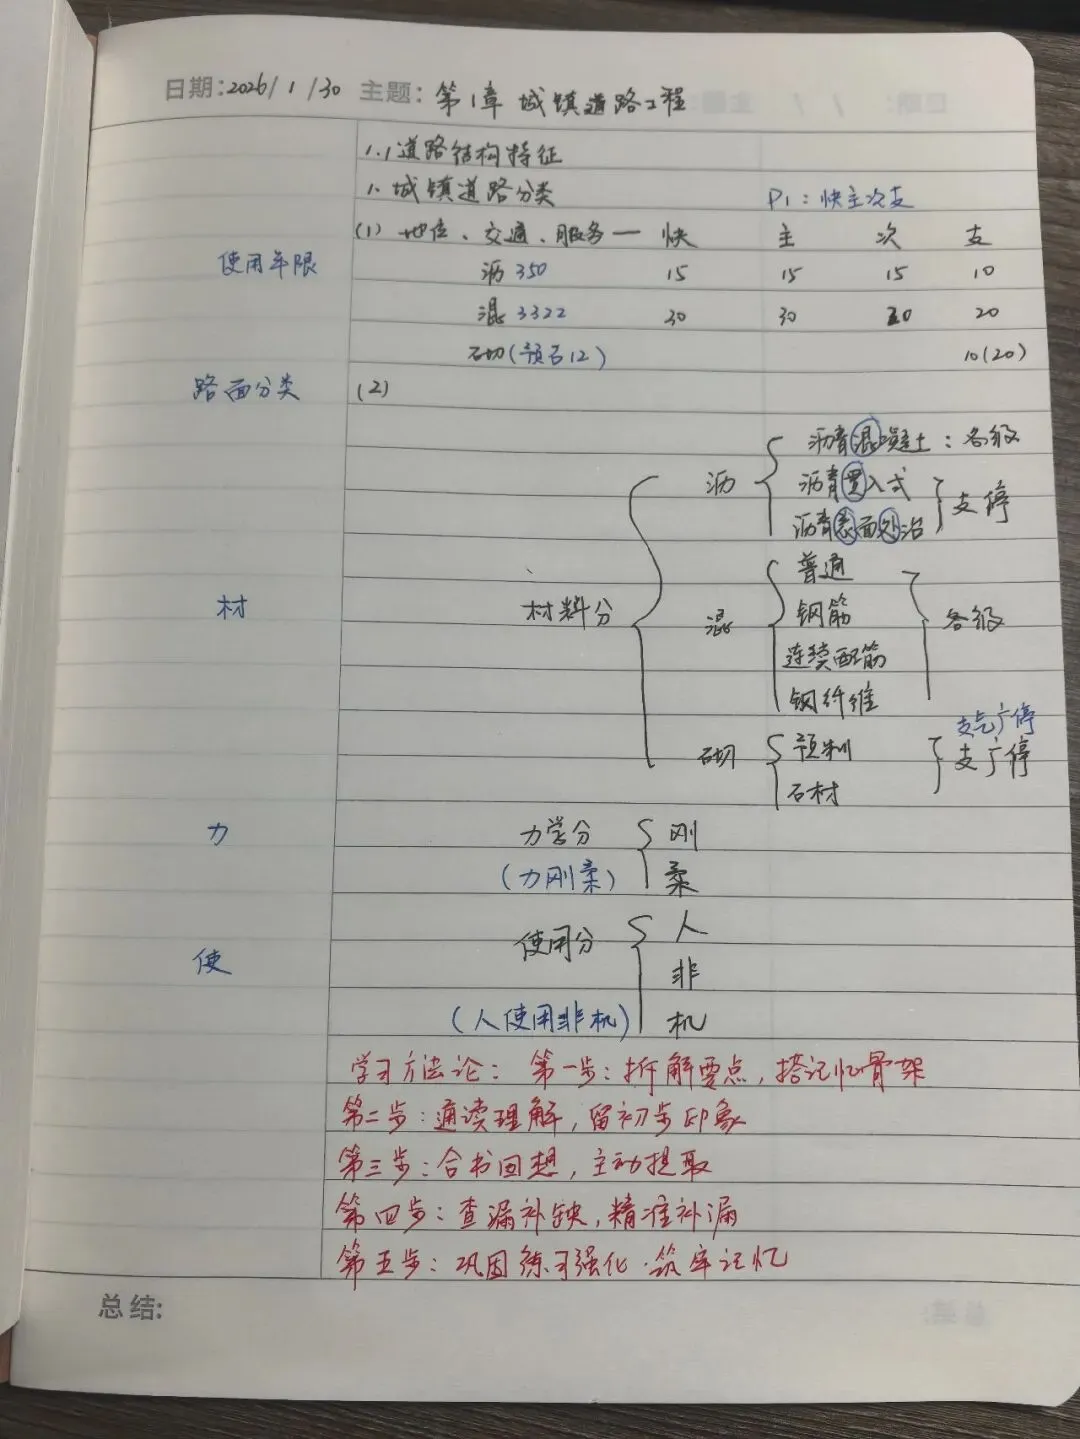 日期:2026/1/30 主题:第1章 城镇道路工程
1.1道路结构特征
1.城镇道路分类 P1:快主次支
(1)地位、交通、服务— 快 主 次 支
使用年限
沥350 15 15 15 10
混3322 30 30 20 20
石切(预石12) 10(20)
路面分类 (2)
沥青混凝土:各级
沥 沥青贯入式 支停
沥青表面处治
普通
材 材料分 混 钢筋 各级
连续配筋
钢纤维
支广停
砌 预制 支广停
石材
力 力学分 刚
(力刚柔) 柔
使 使用分 人
非
(人使用非机) 机
学习方法论:第一步:拆解要点,搭记忆骨架
第二步:通读理解,留初步印象
第三步:合书回想,主动提取
第四步:查漏补缺,精准补漏
第五步:巩固练习强化.筑牢记忆
总结: